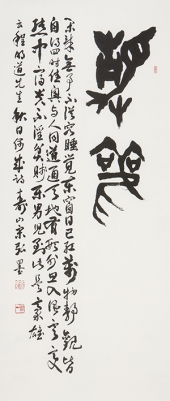 靜觀
閒来無事不從容睡覺東窗日已紅萬物靜觀皆
自得四時佳興與人同道通天地有形外思入風雲變
態中富貴不淫貧賤樂男兒到此是豪雄
程明道先生秋日偶成詩 壽山